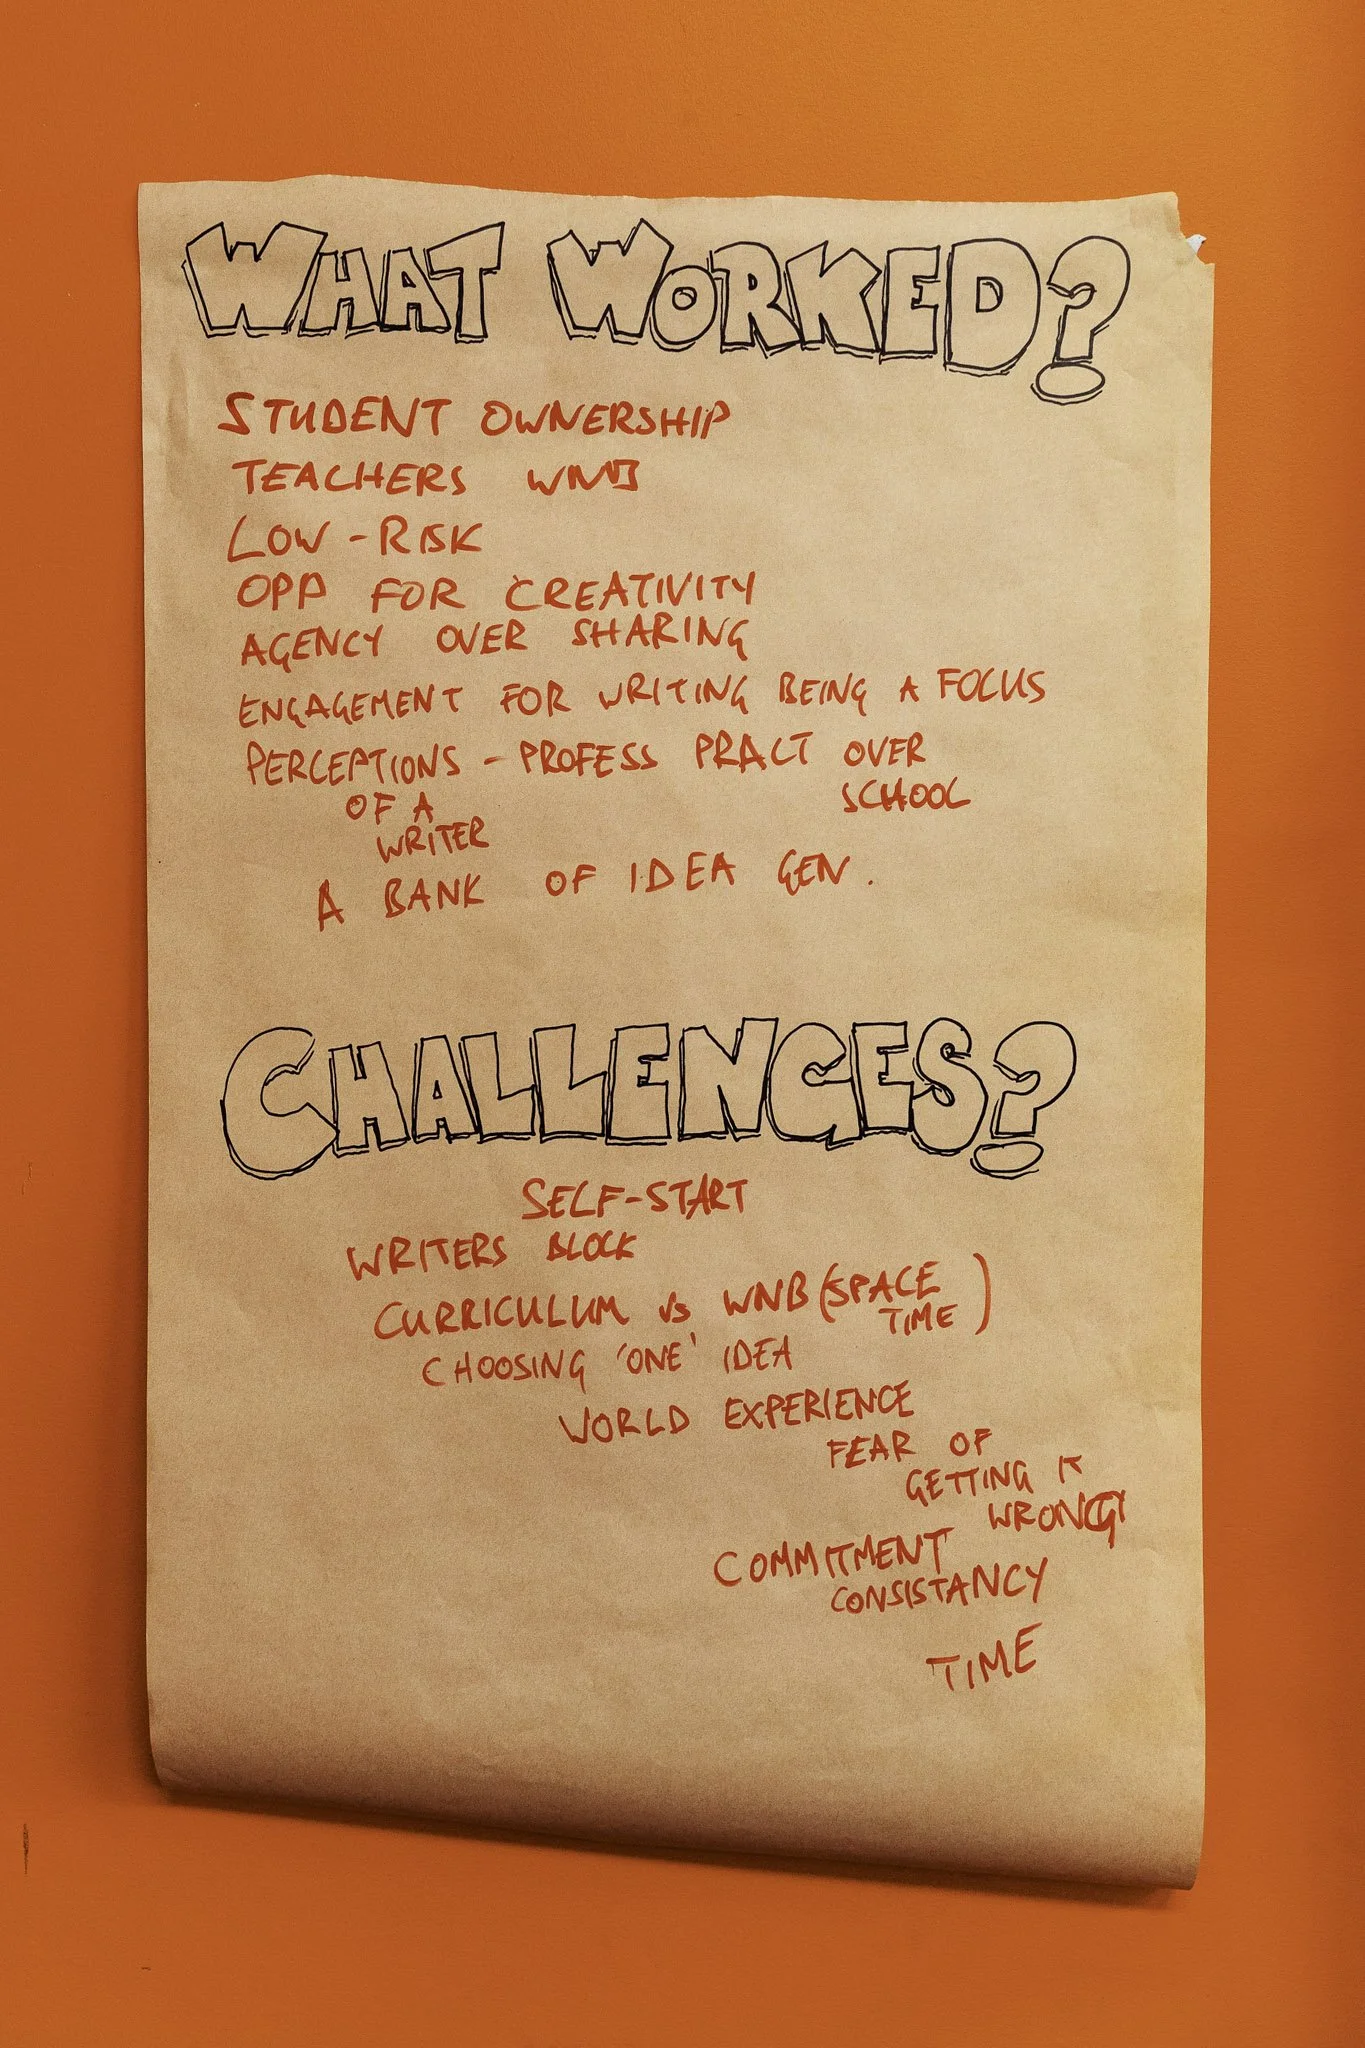 WHAT WORKED?
STUDENT OWNERSHIP
TEACHERS WNB
LOW-RISK
OPP FOR CREATIVITY
AGENCY OVER SHARING
ENGAGEMENT FOR WRITING BEING A FOCUS
PERCEPTIONS - PROFESS PRACT OVER
OF A SCHOOL
WRITER
A BANK OF IDEA GEN.
CHALLENGES?
SELF-START
WRITERS BLOCK
CURRICULUM vs WNB (SPACE
TIME)
CHOOSING 'ONE' IDEA
WORLD EXPERIENCE
FEAR OF
GETTING IT
WRONG
COMMITMENT
CONSISTANCY
TIME